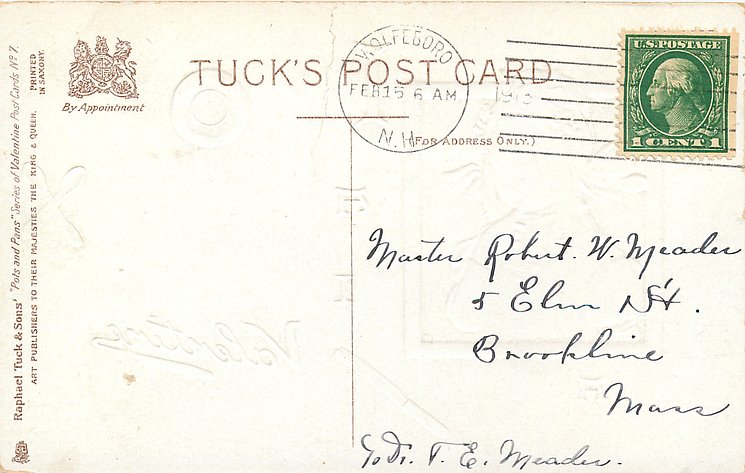 TUCK'S POST CARD
By Appointment
(FOR ADDRESS ONLY.)
WOLFEBORO
FEB 15 6 AM
N.H.
1913
U.S. POSTAGE
1 CENT 1
Raphael Tuck & Sons' "Pots and Pans" Series of Valentine Post Cards No 7.
ART PUBLISHERS TO THEIR MAJESTIES THE KING & QUEEN.
PRINTED
IN SAXONY.
Master Robert. W. Meader
5 Elm St.
Brookline
Mass
T. E. Meader.
Valentine